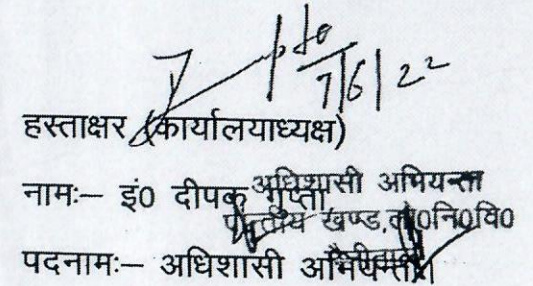 7/6/22
हस्ताक्षर (कार्यालयाध्यक्ष)
नामः– इं0 दीपक गुप्ता
अधिशासी अभियन्ता
खण्ड,
पदनामः– अधिशासी अभियन्ता